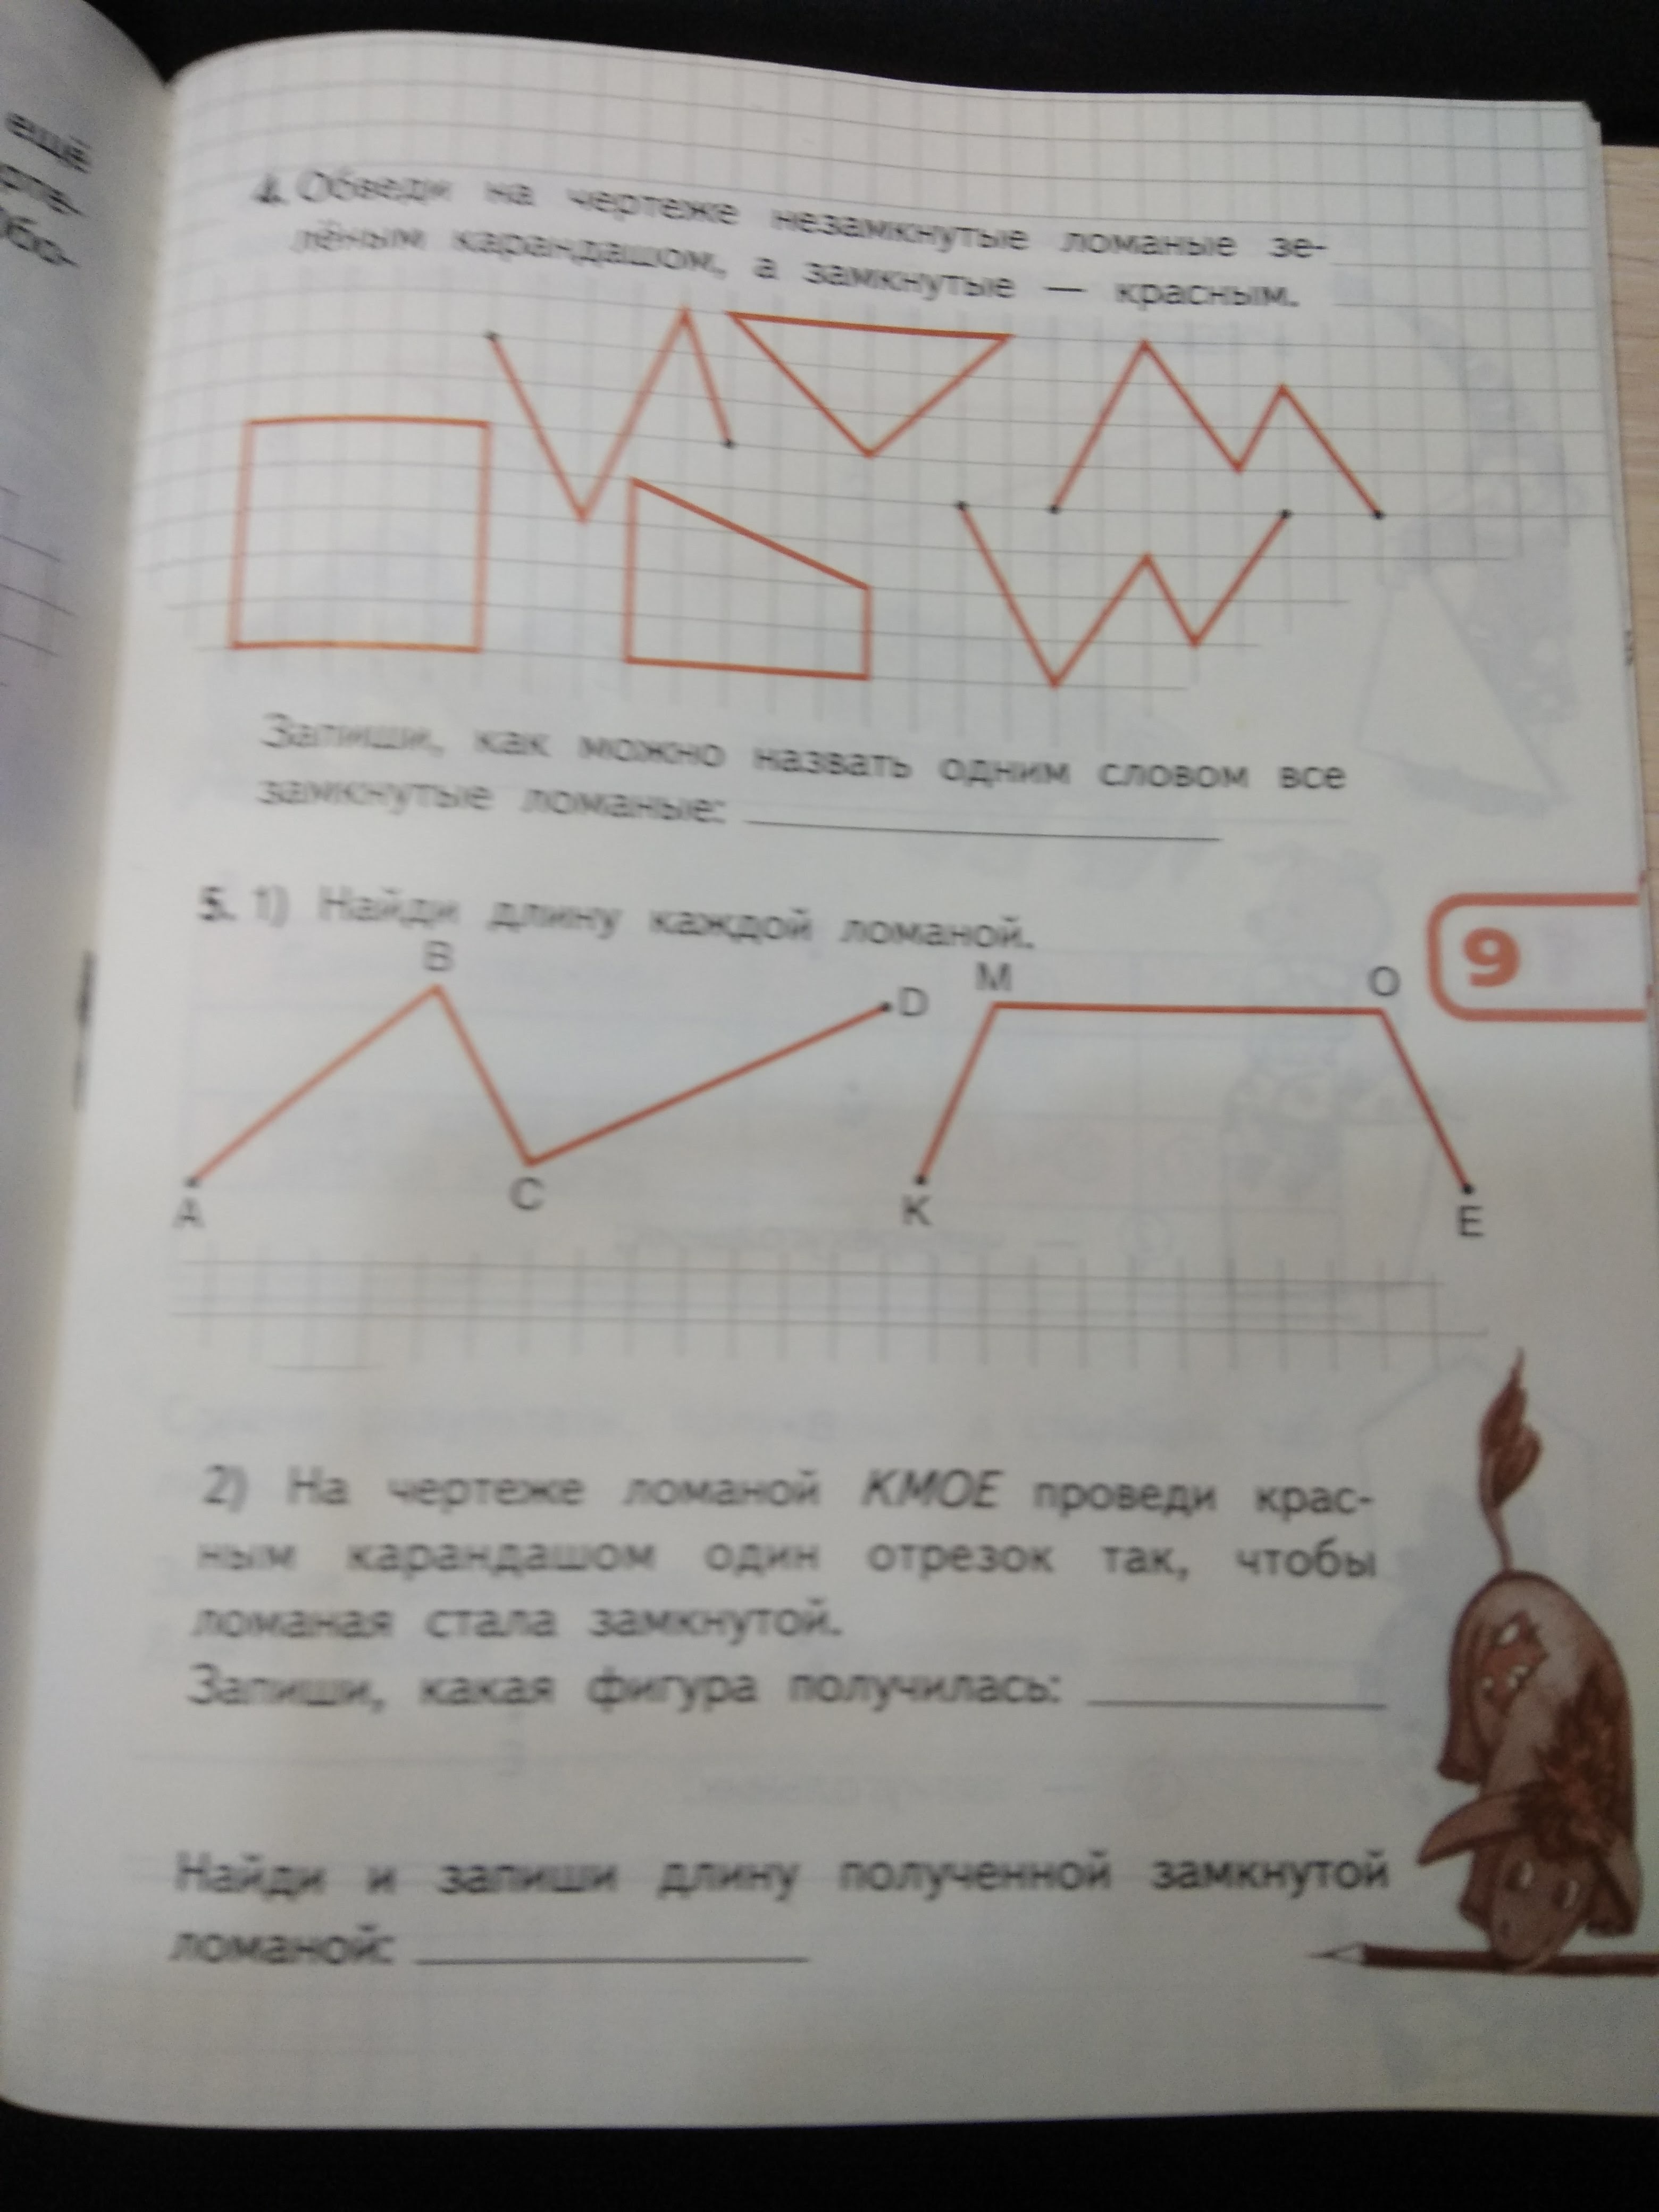 ещё
4. Обведи на чертеже незамкнутые ломаные зе-
лёным карандашом, а замкнутые — красным.
Запиши, как можно назвать одним словом все
замкнутые ломаные:
5. 1) Найди длину каждой ломаной.
9
B
D
M
O
A
C
K
E
2) На чертеже ломаной КМОЕ проведи крас-
ным карандашом один отрезок так, чтобы
ломаная стала замкнутой.
Запиши, какая фигура получилась:
Найди и запиши длину полученной замкнутой
ломаной: